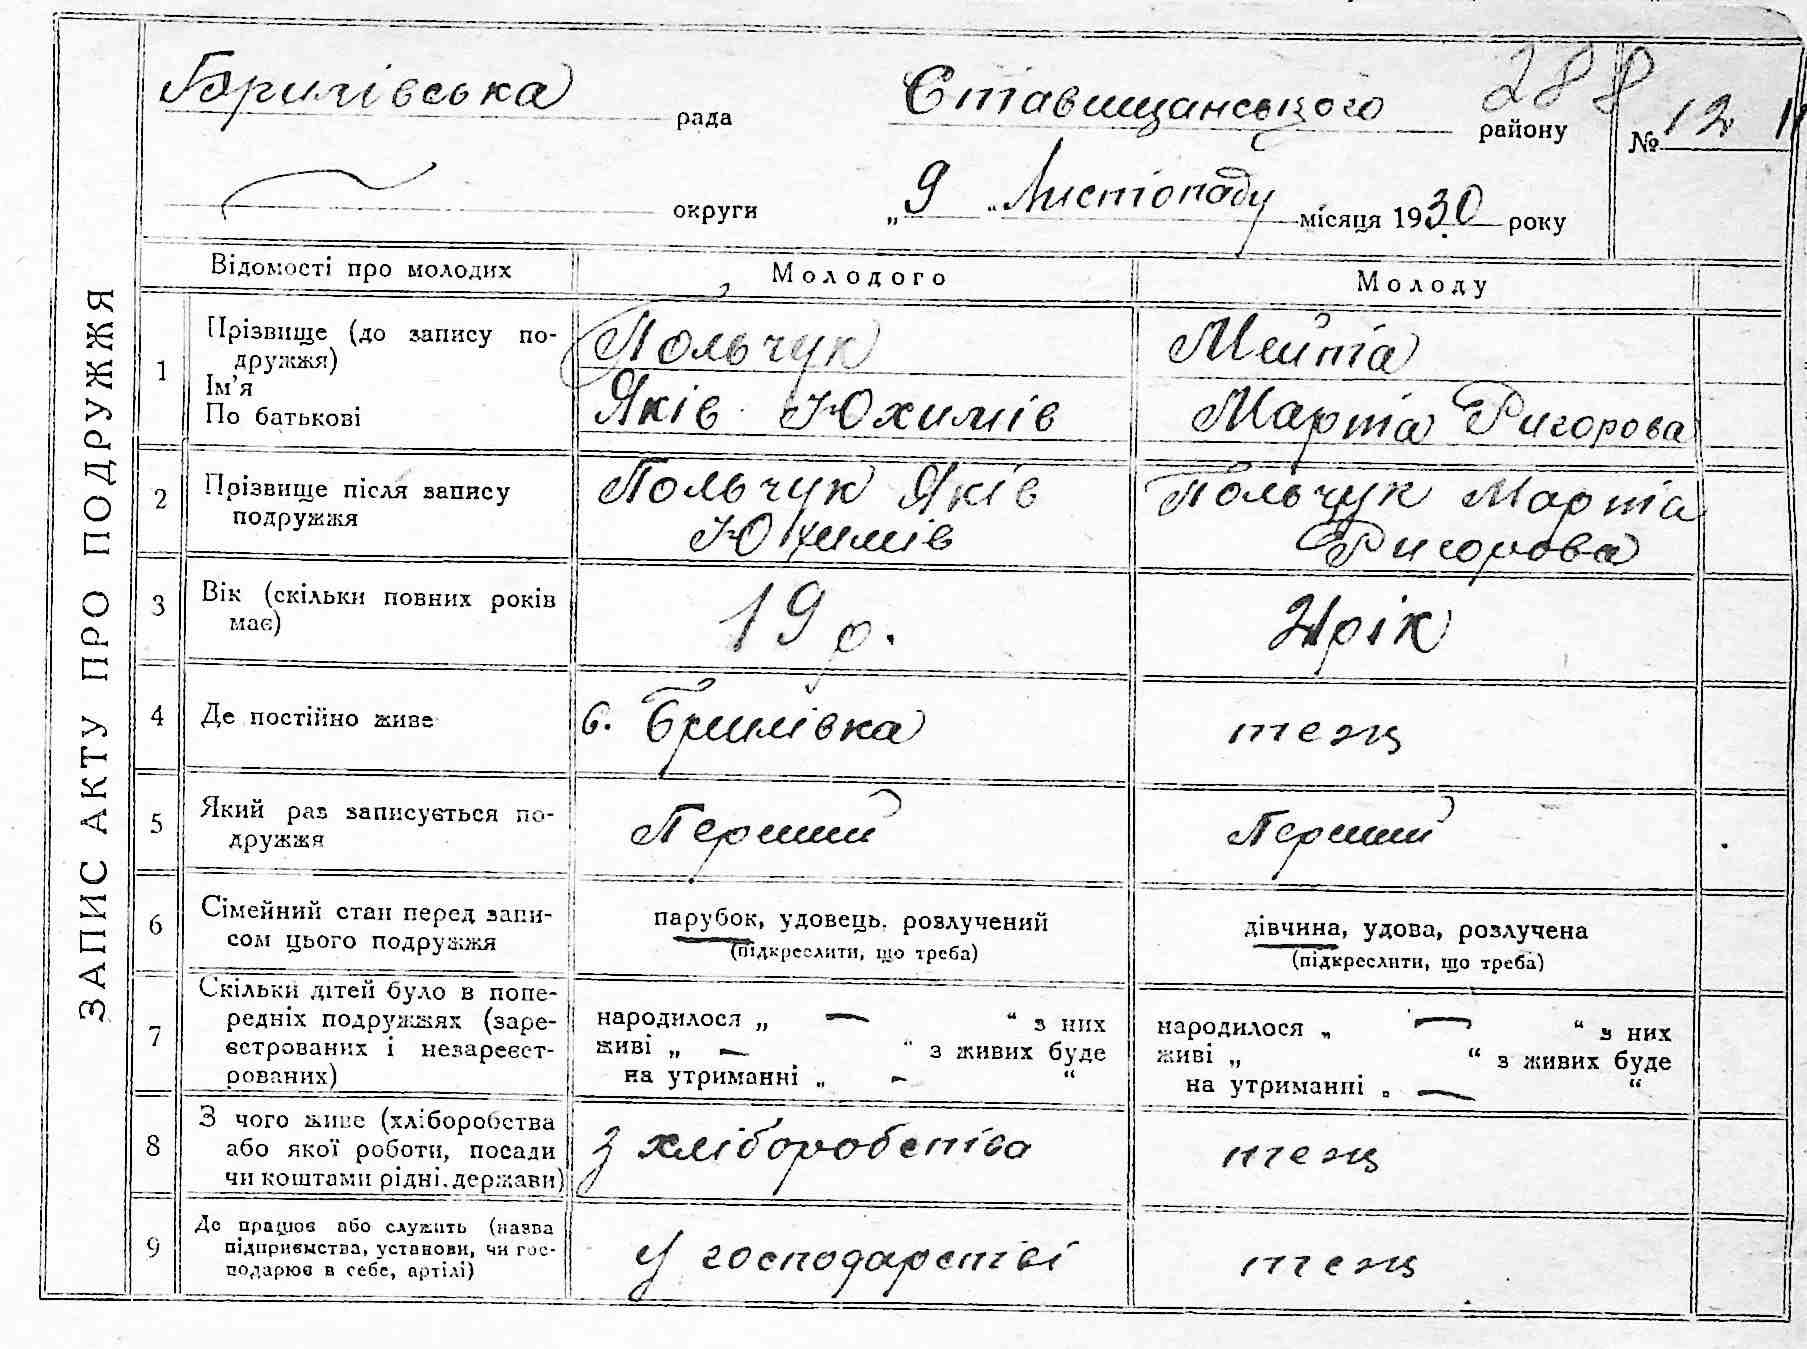 288
Брилівська рада Ставищанського району № 12
округи „9“ Листіопаду місяця 1930 року
ЗАПИС АКТУ ПРО ПОДРУЖЖЯ
Відомості про молодих Молодого Молоду
1 Прізвище (до запису подружжя) Польчук
Ім'я
По батькові Яків Юхимів Марта Ригорова
2 Прізвище після запису Польчук Яків Польчук Марта
подружжя Юхимів Ригорова
3 Вік (скільки повних років 19 р. 21 рік
має)
4 Де постійно живе с. Брилівка теж
5 Який раз записується по- Перший Перший
дружжя
6 Сімейний стан перед запи- парубок, удовець, розлучений дівчина, удова, розлучена
сом цього подружжя (підкреслити, що треба) (підкреслити, що треба)
7 Скільки дітей було в попе-
редніх подружжях (заре- народилося „ — “ з них народилося „ — “ з них
єстрованих і незареєст- живі „ — “ з живих буде живі „ “ з живих буде
рованих) на утриманні „ - “ на утриманні „ — “
8 З чого живе (хліборобства
або якої роботи, посади з хліборобства теж
чи коштами рідні, держави)
9 Де працює або служить (назва
підприємства, установи, чи гос- У господарстві теж
подарює в себе, артілі)